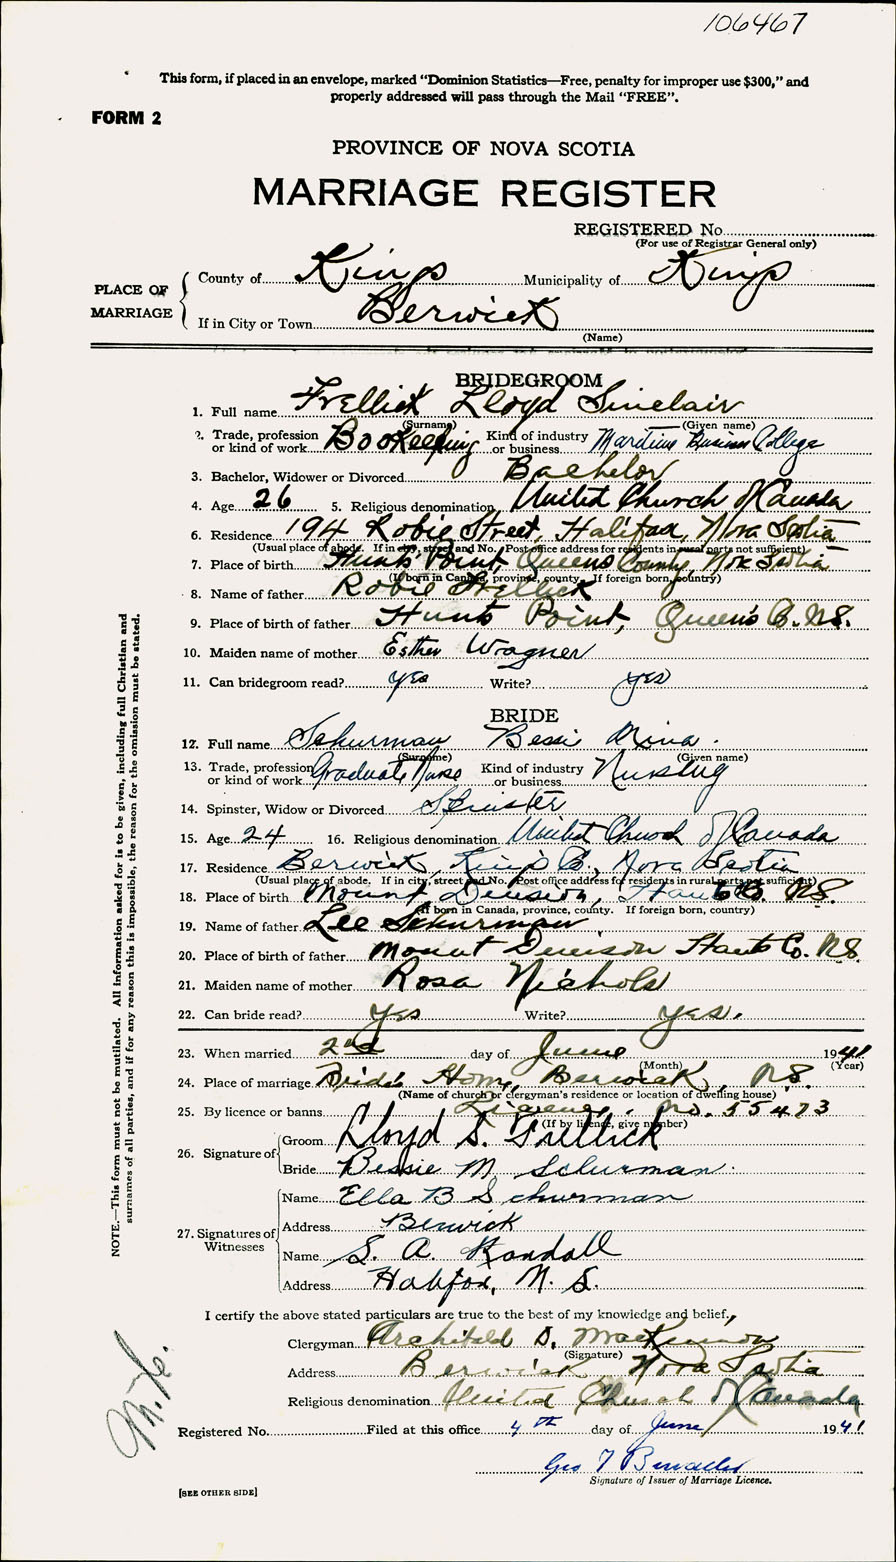 106467
This form, if placed in an envelope, marked “Dominion Statistics—Free, penalty for improper use $300,” and
properly addressed will pass through the Mail “FREE”.
FORM 2
PROVINCE OF NOVA SCOTIA
MARRIAGE REGISTER
REGISTERED No.
(For use of Registrar General only)
PLACE OF MARRIAGE
County of Kings Municipality of Kings
If in City or Town Berwick
(Name)
BRIDEGROOM
1. Full name Frellick Lloyd Sinclair
(Surname) (Given name)
2. Trade, profession or kind of work Bookeeping Kind of industry or business Maritime Business College
3. Bachelor, Widower or Divorced Bachelor
4. Age 26 5. Religious denomination United Church of Canada
6. Residence 194 Robie Street, Halifax, Nova Scotia
(Usual place of abode. If in city, street and No. Post office address for residents in rural parts not sufficient)
7. Place of birth Hunts Point, Queens County, Nova Scotia
(If born in Canada, province, county. If foreign born, country)
8. Name of father Robie Frellick
9. Place of birth of father Hunts Point, Queen's Co. N.S.
10. Maiden name of mother Esther Wagner
11. Can bridegroom read? yes Write? yes
BRIDE
12. Full name Schurman Bessie Mina.
(Surname) (Given name)
13. Trade, profession or kind of work Graduate Nurse Kind of industry or business Nursing
14. Spinster, Widow or Divorced Spinster
15. Age 24 16. Religious denomination United Church of Canada
17. Residence Berwick, Kings Co., Nova Scotia
(Usual place of abode. If in city, street and No. Post office address for residents in rural parts not sufficient)
18. Place of birth Mount Denison, Hants Co. N.S.
(If born in Canada, province, county. If foreign born, country)
19. Name of father Lee Schurman
20. Place of birth of father Mount Denison Hants Co. N.S.
21. Maiden name of mother Rosa Nichols
22. Can bride read? yes Write? yes.
23. When married 2nd day of June 1941
(Month) (Year)
24. Place of marriage Bride's Home, Berwick, N.S.
(Name of church or clergyman's residence or location of dwelling house)
25. By licence or banns Licence. No. 55473
(If by licence, give number)
26. Signature of
Groom Lloyd S. Frellick
Bride Bessie M Schurman.
27. Signatures of Witnesses
Name Ella B Schurman
Address Berwick
Name S. A. Randall
Address Halifax, N. S.
I certify the above stated particulars are true to the best of my knowledge and belief.
Clergyman Archibald D. MacKinnon
(Signature)
Address Berwick Nova Scotia
Religious denomination United Church of Canada
Registered No. Filed at this office 4th day of June 1941
Geo
Signature of Issuer of Marriage Licence.
[SEE OTHER SIDE]
NOTE.—This form must not be mutilated. All information asked for is to be given, including full Christian and
surnames of all parties, and if for any reason this is impossible, the reason for the omission must be stated.